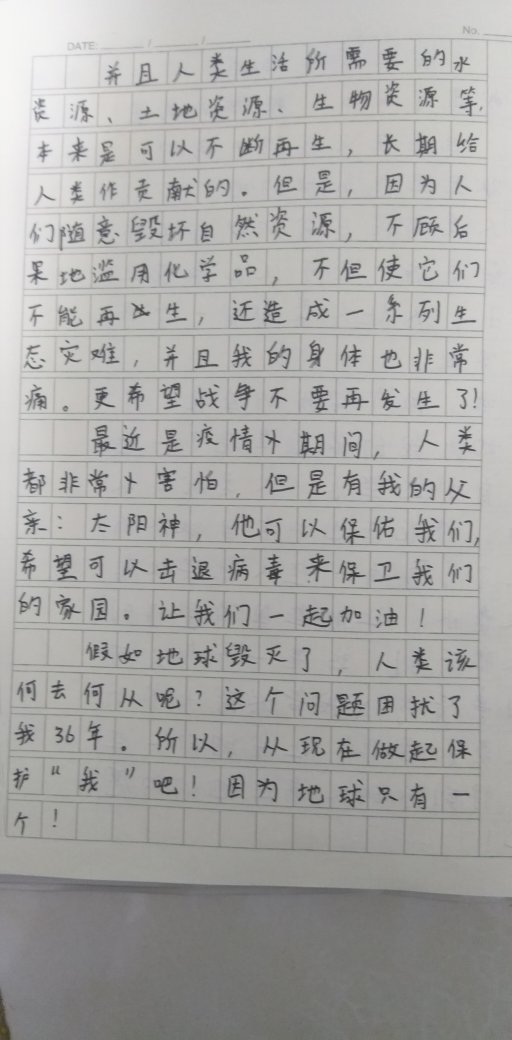 DATE: / /
No.
并且人类生活所需要的水
资源、土地资源、生物资源等,
本来是可以不断再生，长期给
人类作贡献的。但是，因为人
们随意毁坏自然资源，不顾后
果地滥用化学品，不但使它们
不能再生，还造成一系列生
态灾难，并且我的身体也非常
痛。更希望战争不要再发生了!
最近是疫情期间，人类
都非常害怕，但是有我的父
亲：太阳神，他可以保佑我们,
希望可以击退病毒来保卫我们
的家园。让我们一起加油！
假如地球毁灭了，人类该
何去何从呢？这个问题困扰了
我36年。所以，从现在做起保
护“我”吧！因为地球只有一
个！